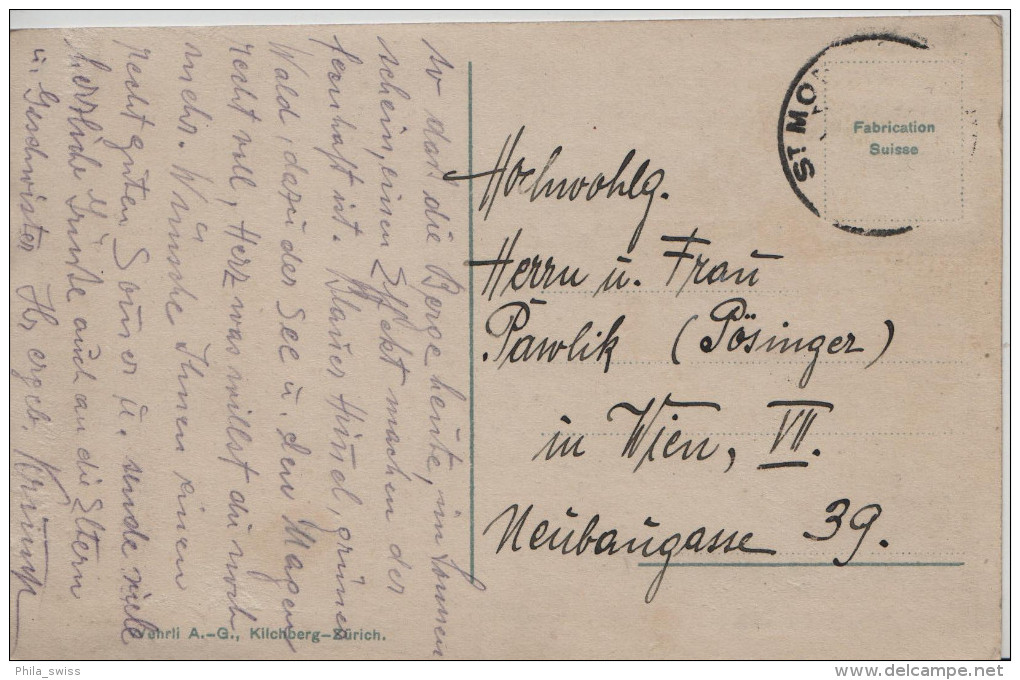 so dass die Berge heute, im Sonnen
schein, einen Effekt machen der
fernhaft ist. Blauer Himmel, grüner
Wald, dazu der See u. den Magen
recht voll, Herz was willst du noch
mehr. Wünsche Ihnen einen
recht guten Sommer u. sende viele
herzliche Grüsse auch an die Eltern
u. Geschwister Ihr ergeb.
ST MO
Fabrication
Suisse
Hochwohlg.
Herrn u. Frau
Pawlik (Pösinger)
in Wien, VII.
Neubaugasse 39.
Wehrli A.-G., Kilchberg-Zürich.
Phila_swiss
www.delcampe.net